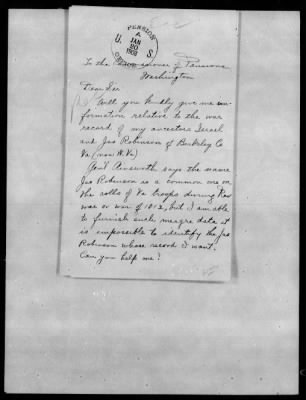 PENSION
U. S.
JAN
20
OFFICE
To the Commissioner of Pensions
Washington
Dear Sir
Will you kindly give me in-
formation relative to the war
record of my ancestors Israel
and Jas Robinson of Berkeley Co
Va (now W. Va)
Gen'l Ainsworth says the name
Jas Robinson is a common one on
the rolls of Va troops during Rev
war or war of 1812, but I am able
to furnish such meagre data it
is impossible to identify the Jas
Robinson whose record I want.
Can you help me?